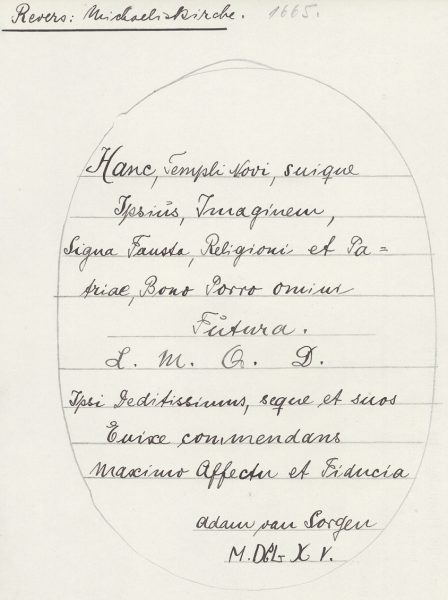 Revers: Michaeliskirche. 1665.
Hanc, Templi Novi, suique
Ipsius, Imaginem,
Signa Fausta, Religioni et Pa=
triae, Bono Porro omini
Futura.
L. M. Q. D.
Ipsi Deditissimus, seque et suos
Enixe commendans
Maximo Affectu et Fiducia
Adam van Sorgen